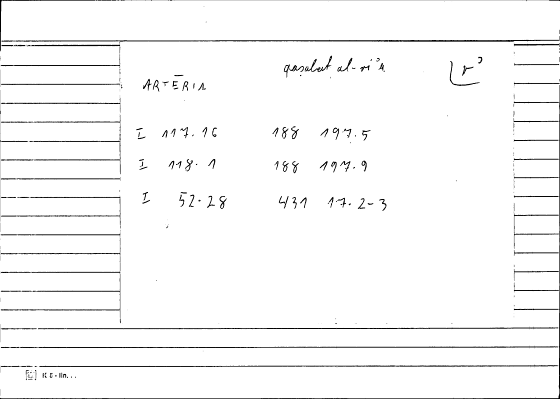 qasabat al-ri'a
r'
ARTĒRIA
I 117.16 188 197.5
I 118.1 188 197.9
I 52.28 431 17.2-3